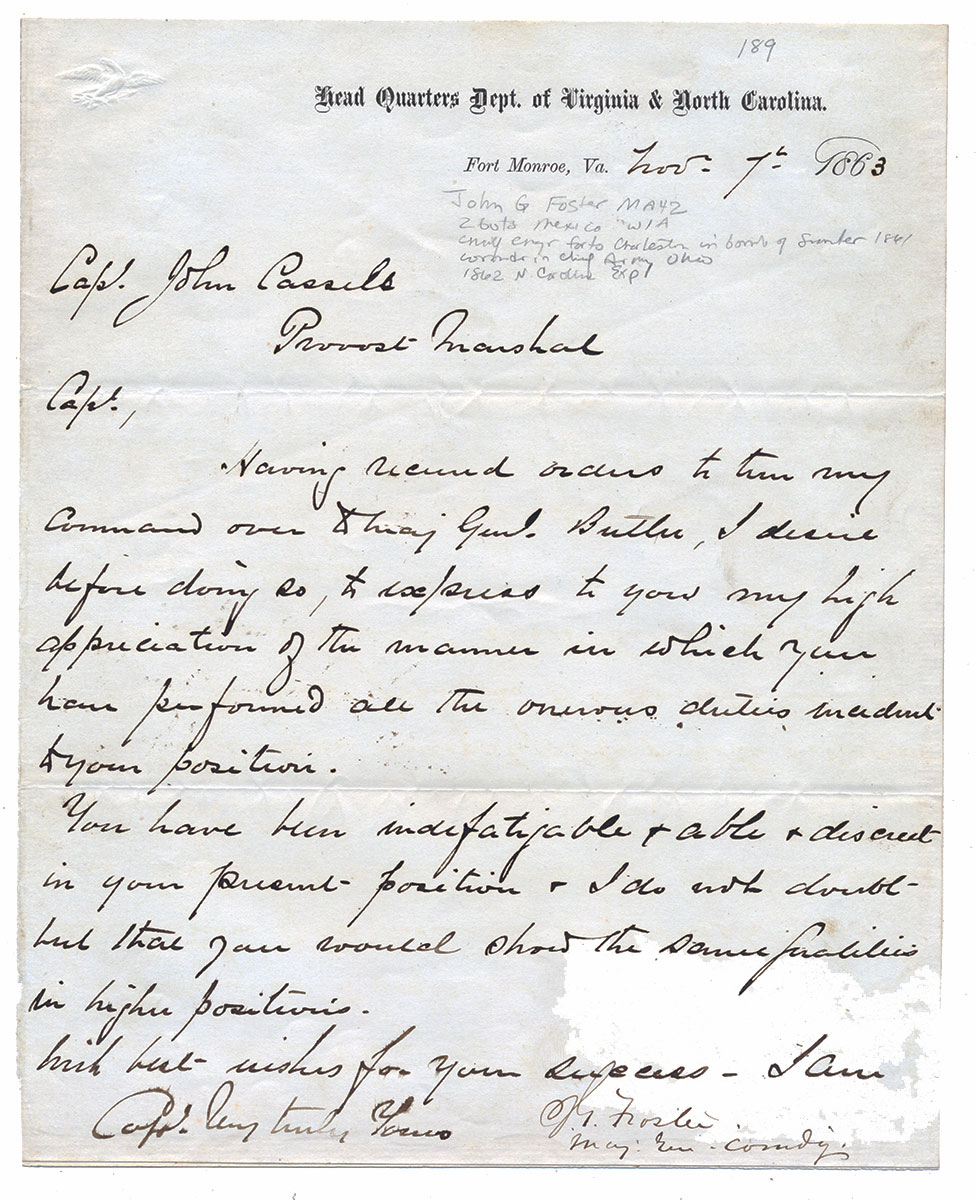 189
Head Quarters Dept. of Virginia & North Carolina.
Fort Monroe, Va. Nov. 7th 1863
John G Foster MA42
2 bvts Mexico "WIA
engr forts Charleston in bomb of Sumter 1861
in chg Army Ohio
1862 N. Expl
Capt. John Cassels
Provost Marshal
Capt.,
Having received orders to turn my
command over to Maj Genl. Butler, I desire
before doing so, to express to you my high
appreciation of the manner in which you
have performed all the onerous duties incident
to your position.
You have been indefatigable + able + discreet
in your present position + I do not doubt
but that you would show the same faculties
in higher positions.
With best wishes for your success - I am
Capt. Very truly Yours
J. G. Foster
Maj. Gen. Comdg.